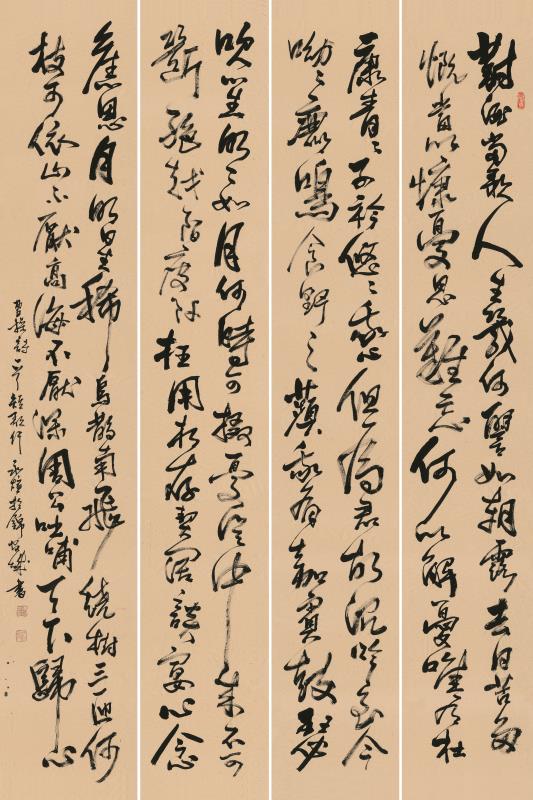 對酒當歌人生幾何譬如朝露去日苦多
慨當以慷憂思難忘何以解憂唯有杜
康青々子衿悠々我心但為君故沉吟至今
呦々鹿鳴食野之蘋我有嘉賓鼓瑟
吹笙明々如月何時可掇憂從中來不可
斷絕越陌度阡枉用相存契闊談宴心念
舊恩月明星稀烏鵲南飛繞樹三匝何
枝可依山不厭高海不厭深周公吐哺天下歸心
曹操詩一首短歌行